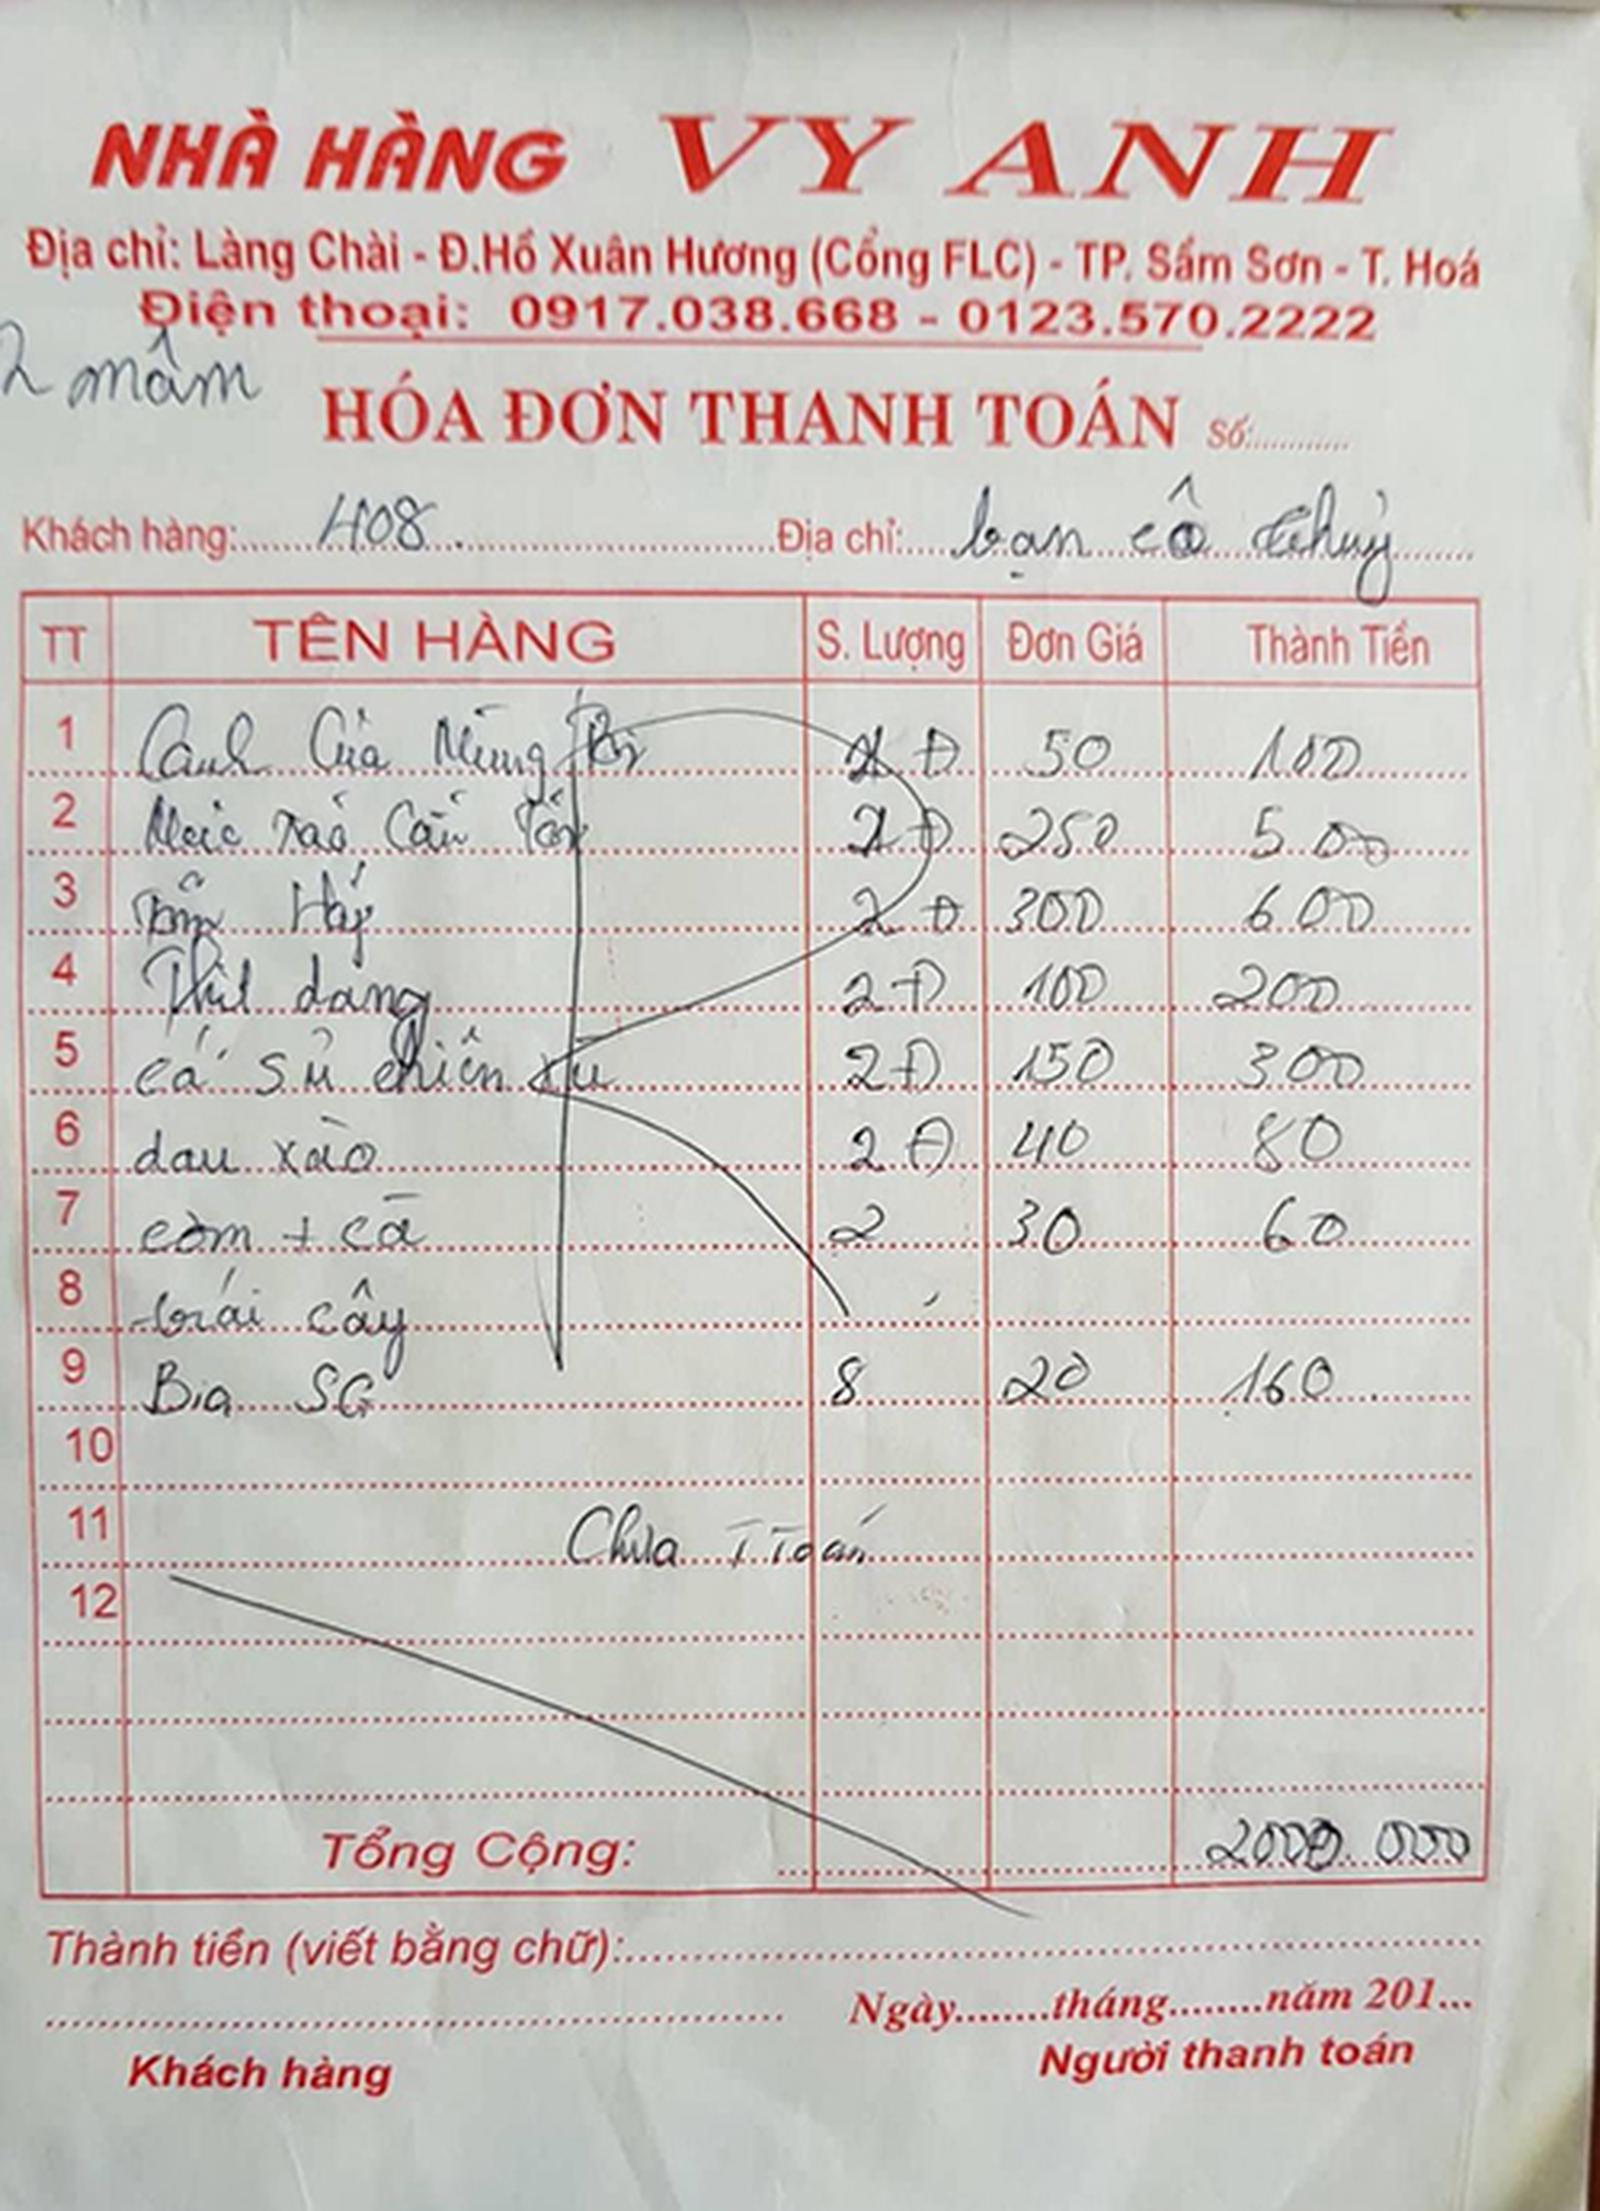 NHÀ HÀNG VY ANH
Địa chỉ: Làng Chài - Đ.Hồ Xuân Hương (Cổng FLC) - TP. Sầm Sơn - T. Hoá
Điện thoại: 0917.038.668 - 0123.570.2222
2 mâm
HÓA ĐƠN THANH TOÁN Số:............
Khách hàng: 408. Địa chỉ: bạn cô Thuỷ
TT TÊN HÀNG S. Lượng Đơn Giá Thành Tiền
1 Canh Cua Mùng 2 Đ 50 100
2 xào Cần Tỏi 2 Đ 250 500
3 Tôm Hấp 2 Đ 300 600
4 Thịt dang 2 Đ 100 200
5 cá sủ chiên xù 2 Đ 150 300
6 dau xào 2 Đ 40 80
7 cơm + cà 2 30 60
8 trái cây
9 Bia SG 8 20 160
10
11 Chưa TToán
12
Tổng Cộng: 2000.000
Thành tiền (viết bằng chữ):
Ngày........tháng........năm 201...
Khách hàng Người thanh toán